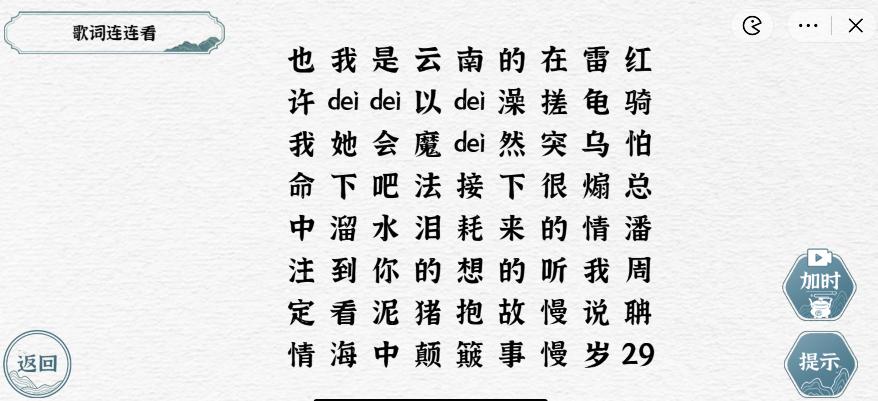 歌词连连看
也 我 是 云 南 的 在 雷 红
许 deì deì 以 deì 澡 搓 龟 骑
我 她 会 魔 deì 然 突 乌 怕
命 下 吧 法 接 下 很 煽 总
中 溜 水 泪 耗 来 的 情 潘
注 到 你 的 想 的 听 我 周
定 看 泥 猪 抱 故 慢 说 聃
情 海 中 颠 簸 事 慢 岁 29
加时
返回
提示